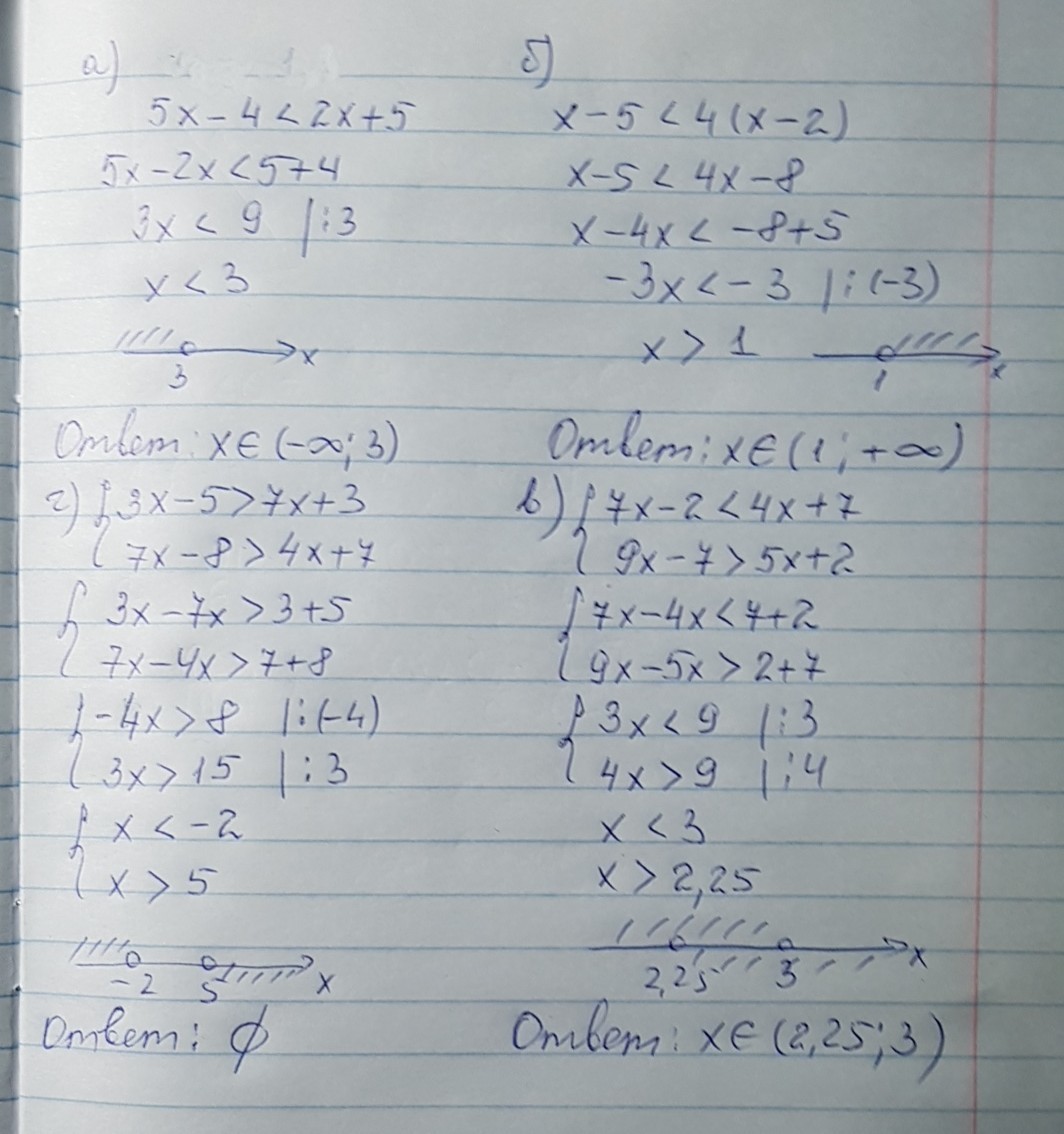 а)
5x-4<2x+5
5x-2x<5+4
3x<9 |:3
x<3
x
3
Ответ: x∈(-∞;3)
б)
x-5<4(x-2)
x-5<4x-8
x-4x<-8+5
-3x<-3 |:(-3)
x>1
1
x
Ответ: x∈(1;+∞)
г) { 3x-5>7x+3
7x-8>4x+7
{ 3x-7x>3+5
7x-4x>7+8
{ -4x>8 |:(-4)
3x>15 |:3
{ x<-2
x>5
-2 5 x
Ответ: ∅
в) { 7x-2<4x+7
9x-7>5x+2
{ 7x-4x<7+2
9x-5x>2+7
{ 3x<9 |:3
4x>9 |:4
x<3
x>2,25
2,25 3 x
Ответ: x∈(2,25;3)